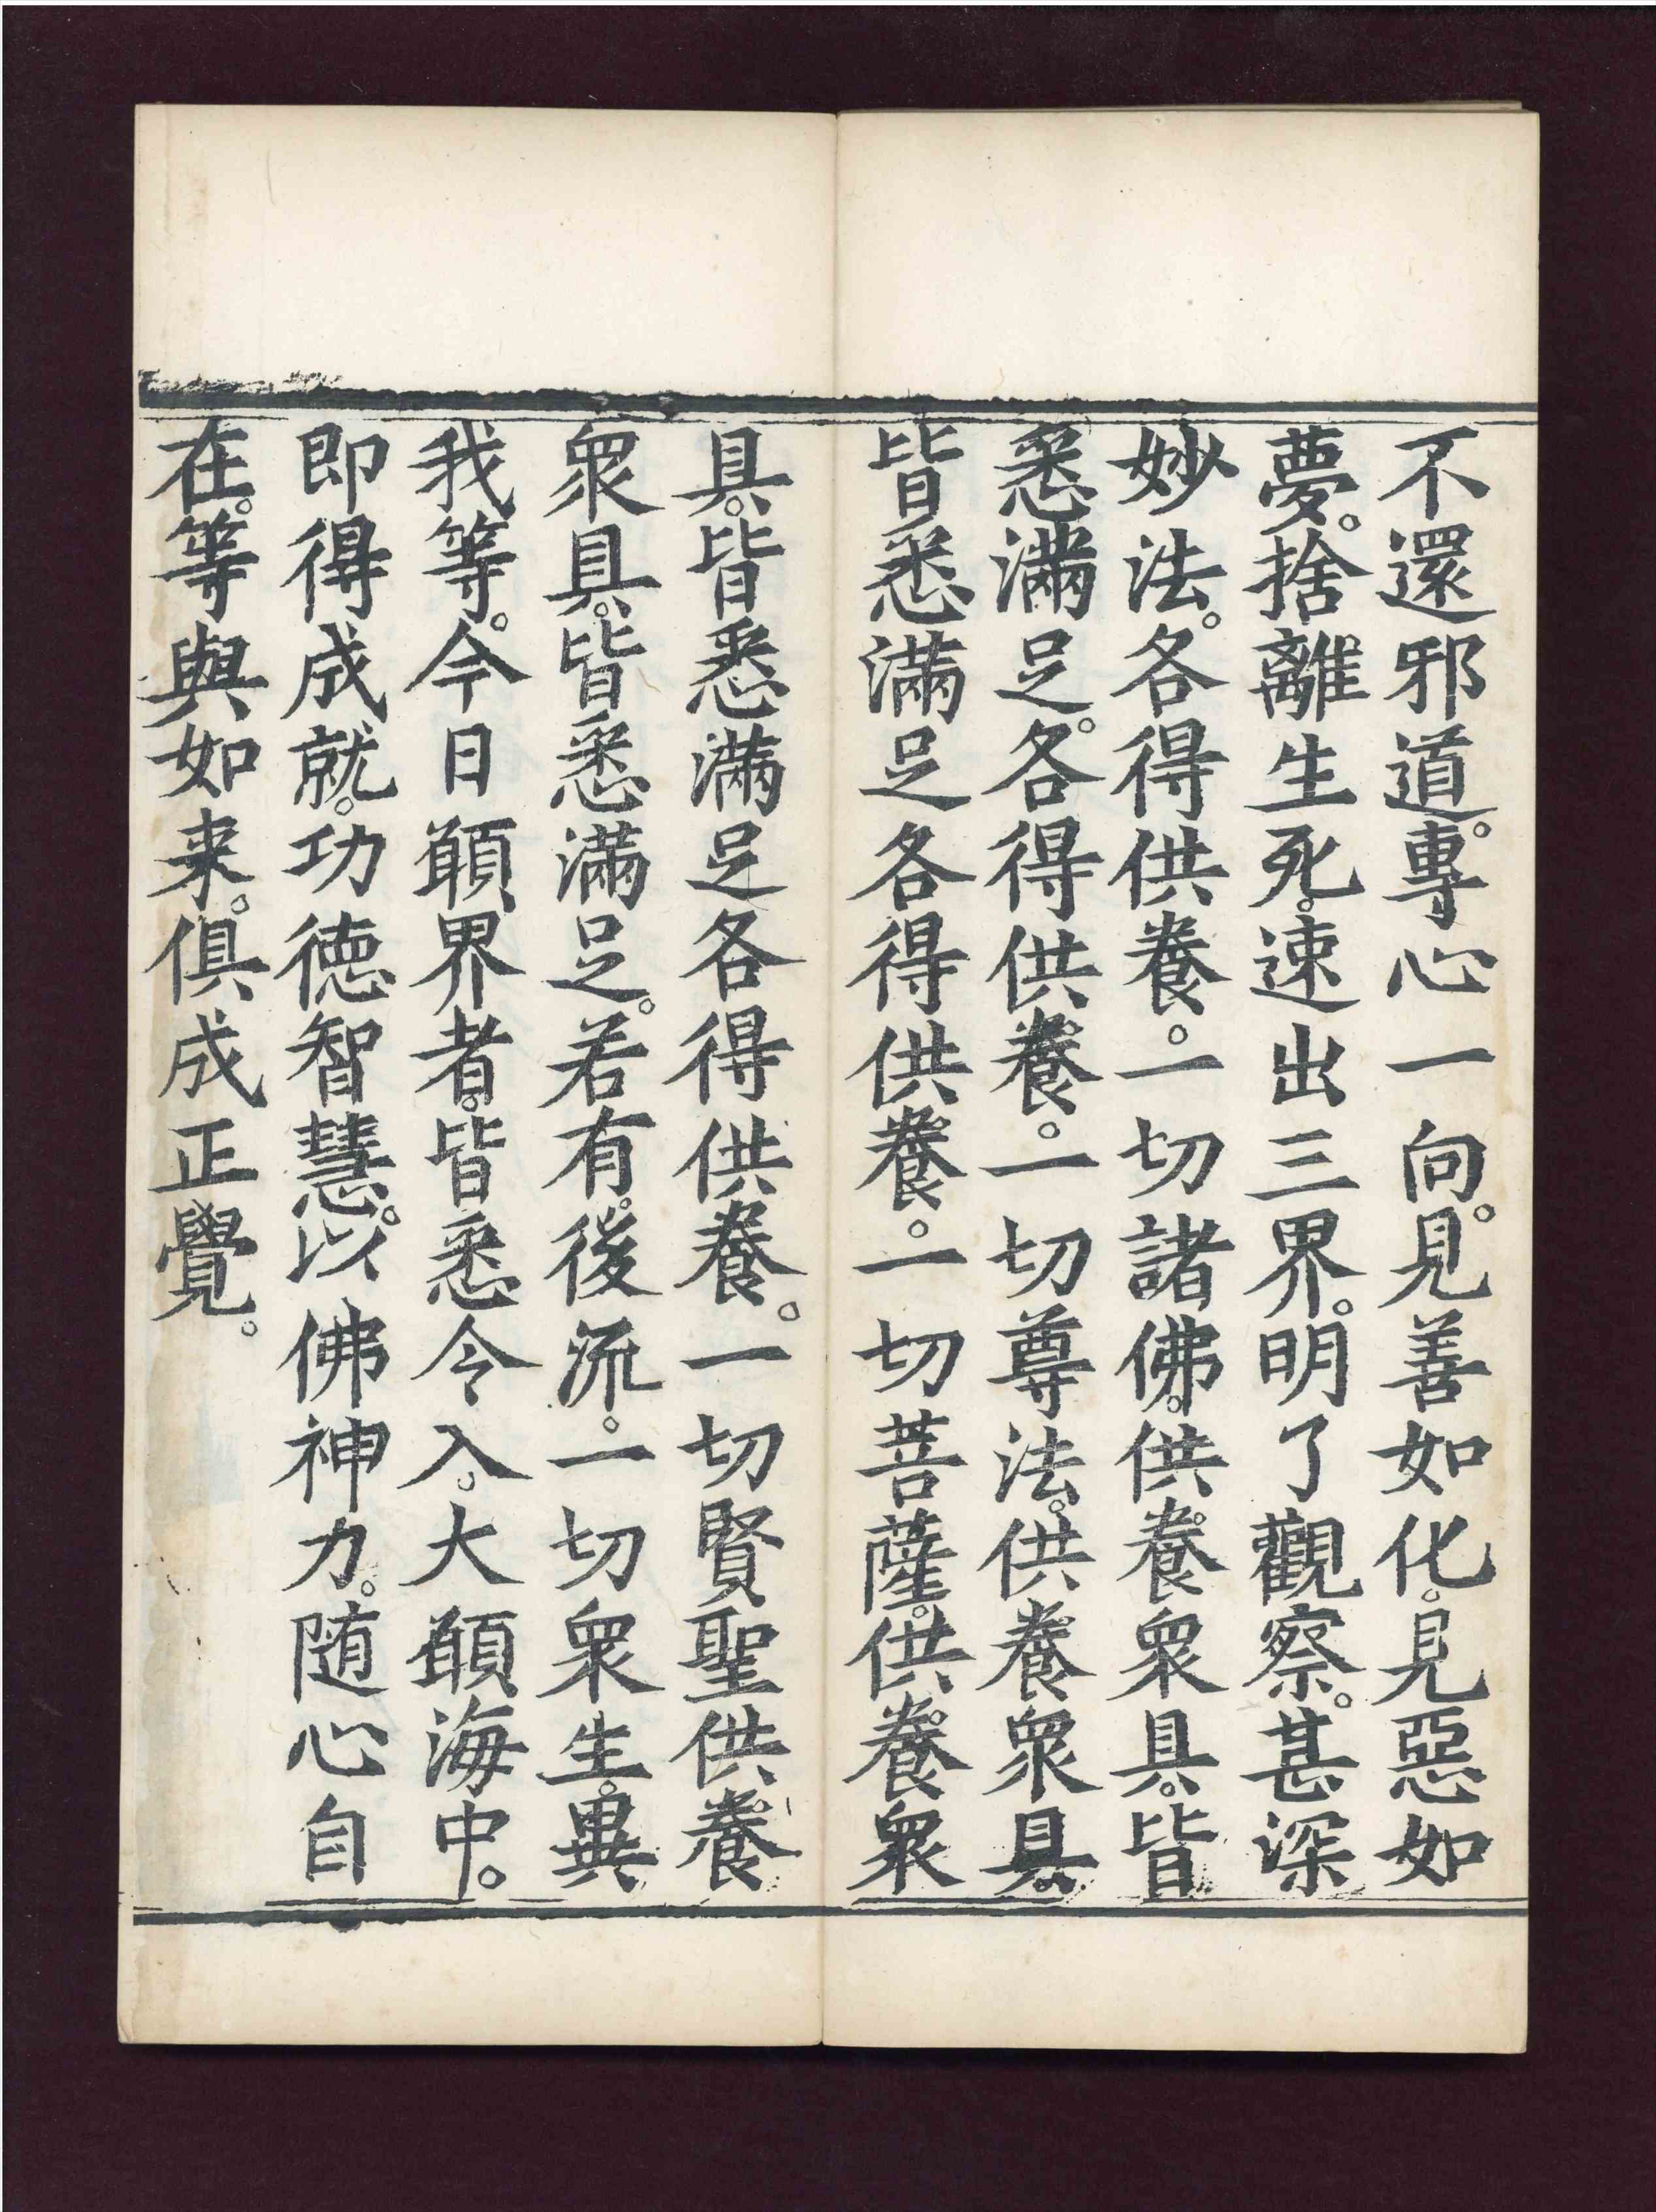 不還邪道。專心一向。見善如化。見惡如
夢。捨離生死。速出三界。明了觀察。甚深
妙法。各得供養。一切諸佛。供養眾具。皆
悉滿足。各得供養。一切尊法。供養眾具。
皆悉滿足各得供養。一切菩薩。供養眾
具。皆悉滿足各得供養。一切賢聖供養
眾具。皆悉滿足。若有。後流。一切眾生。異
我等。今日願界者。皆悉令入。大願海中。
即得成就。功德智慧。以佛神力。随心自
在。等與如来。俱成正覺。